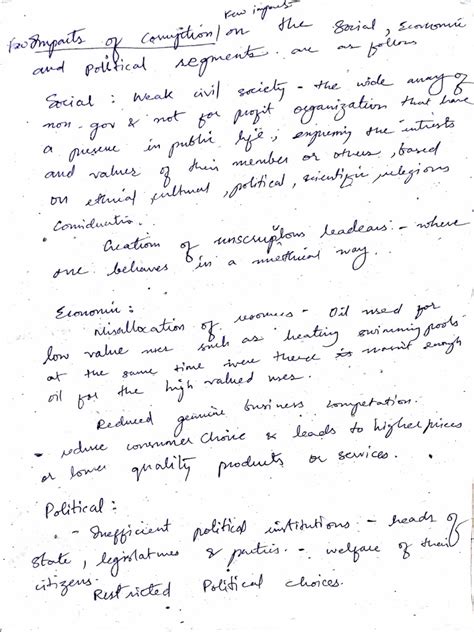 Few impacts
Few Impacts of Corruption / on the Social, Economic
and Political segments are as follows
Social : Weak civil society - the wide array of
non-gov & not for profit organization that have
a presence in public life, expressing the intrests
and values of their member or others, based
on ethical cultural, political, scientific, religious
Creation of unscruplous leadears - where
one behaves in a unethical way.
Economic :
Misallocation of resources - Oil used for
low value uses such as heating swimming pools
at the same time were there is enough
oil for the high valued uses.
Reduced genuine business competation.
- reduce consumer choice & leads to higher prices
or lower quality products or services.
Political :
- Inefficient political institutions - heads of
State, legislatures & parties - welfare of their
citizens.
Restricted Political choices.